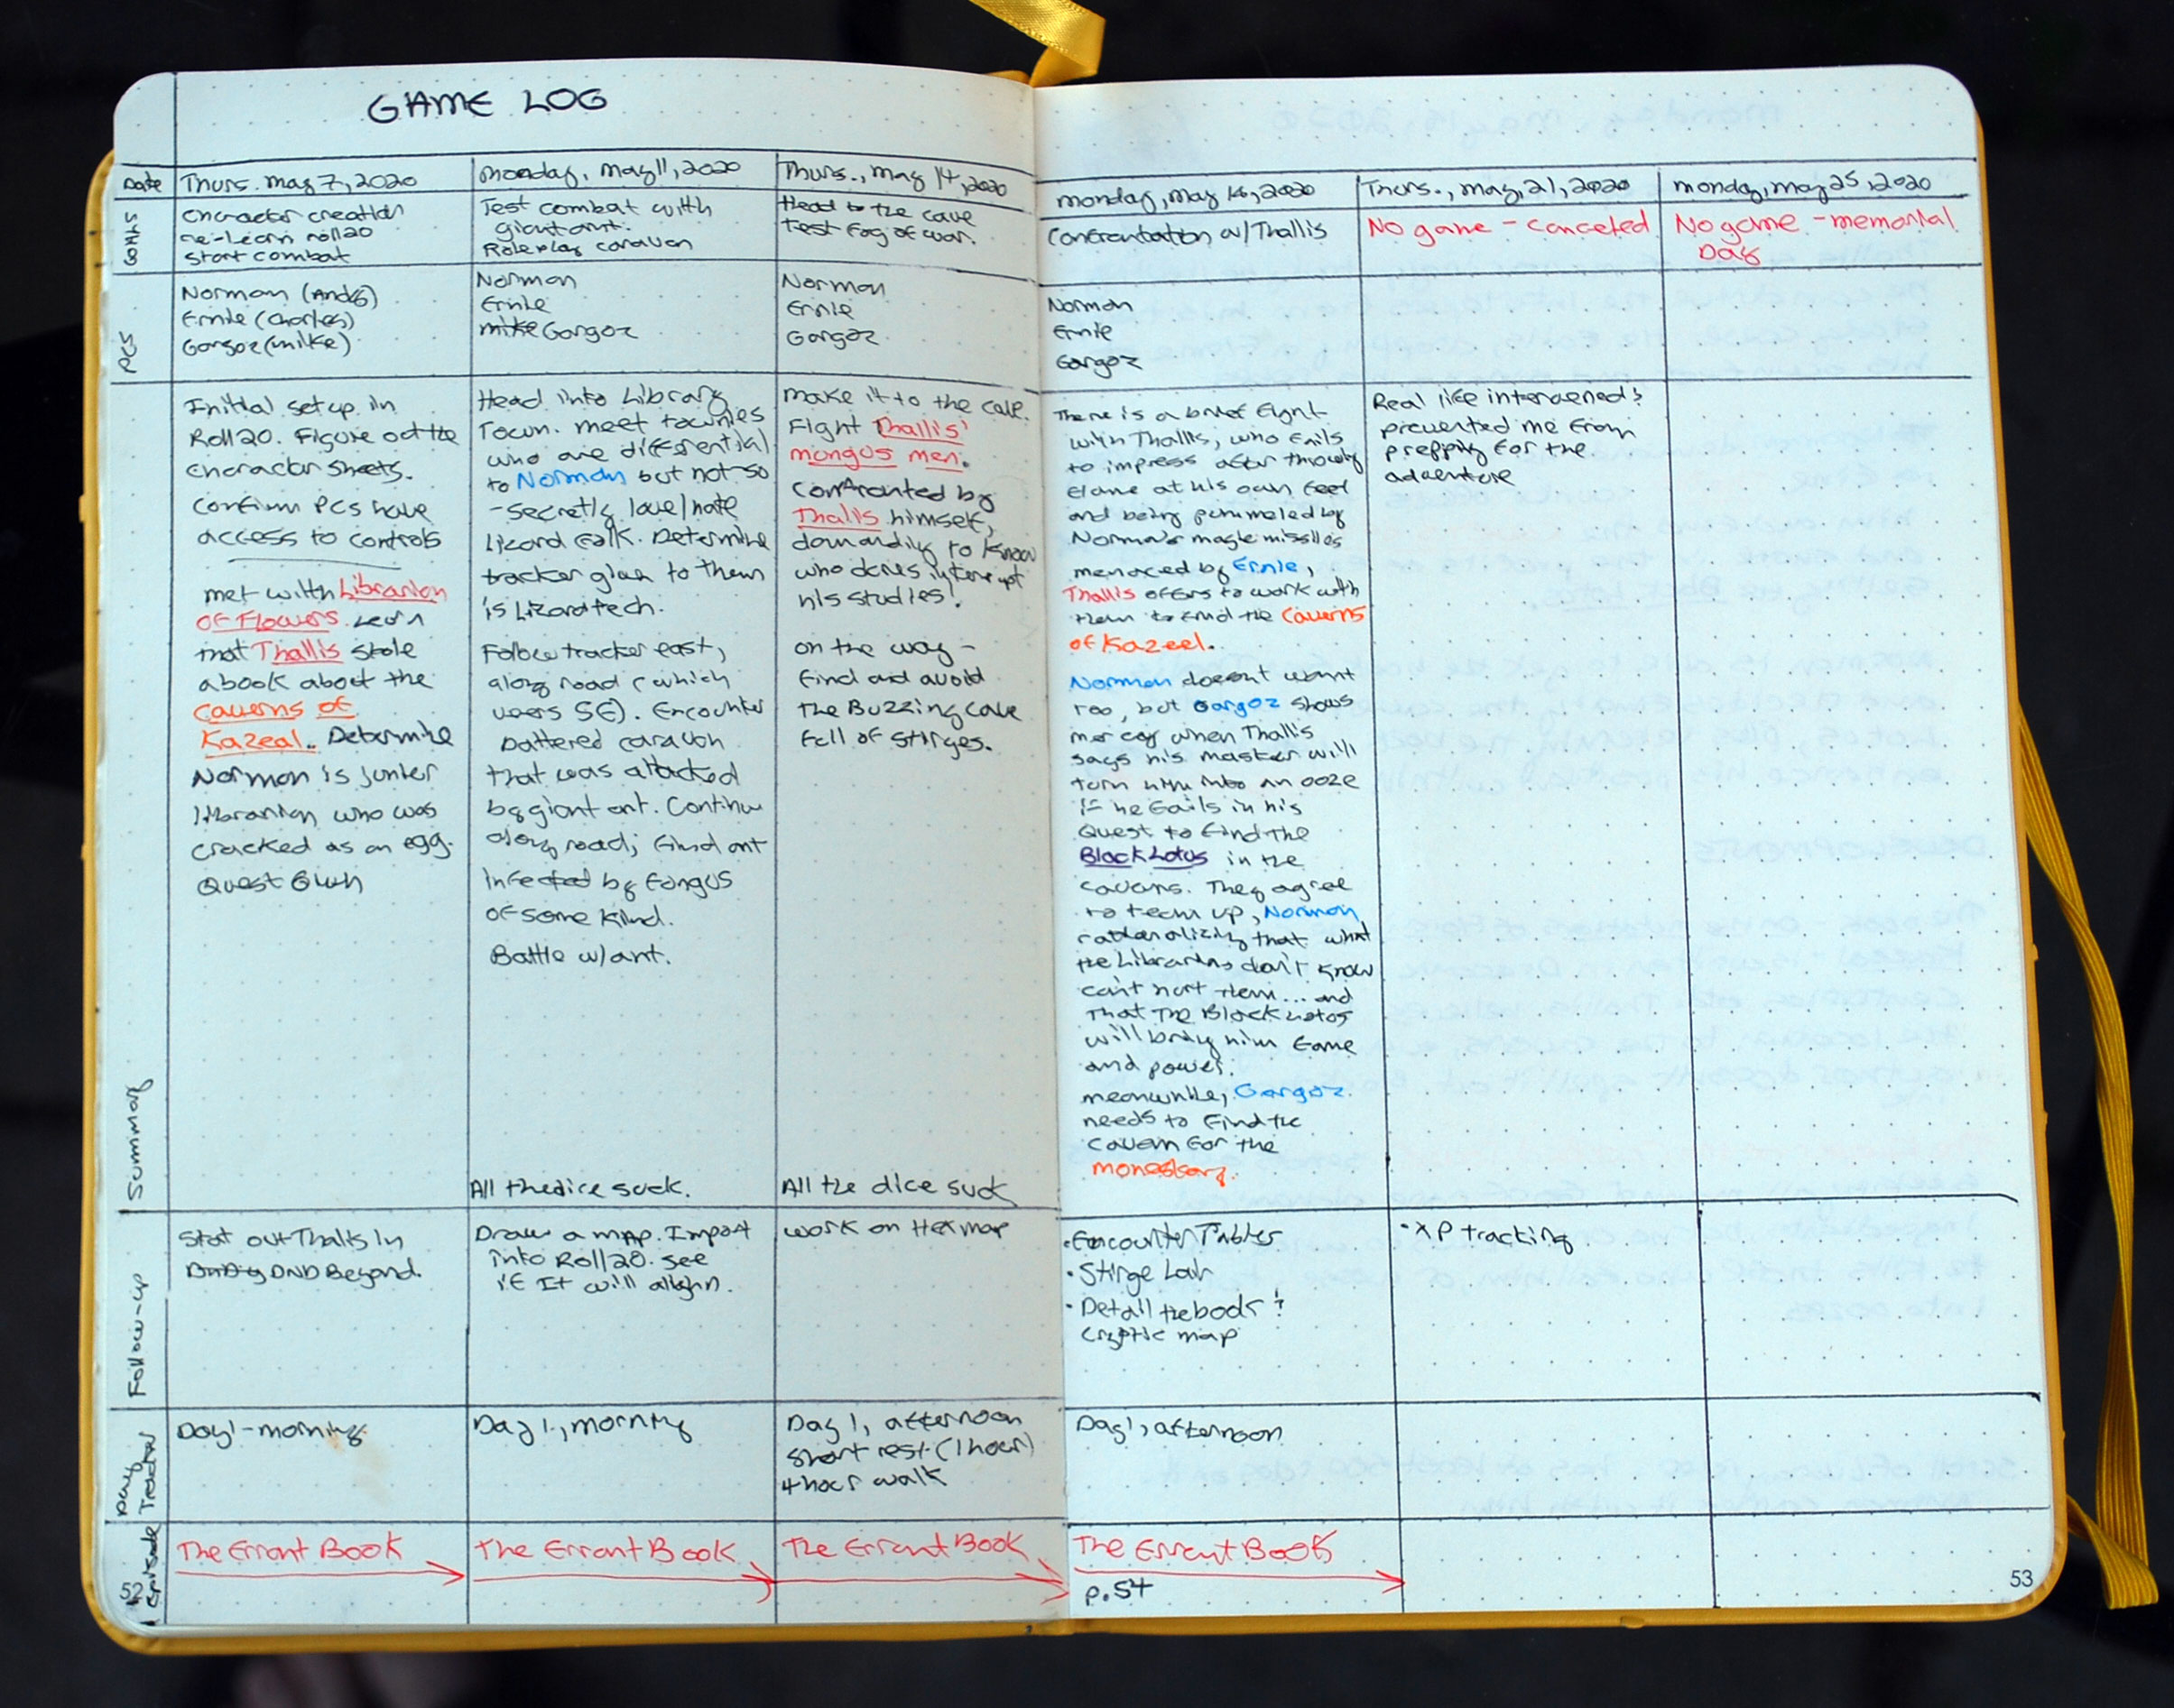 GAME LOG
Date
Thurs. May 7, 2020
Monday, May 11, 2020
Thurs., May 14, 2020
Monday, May 18, 2020
Thurs., May, 21, 2020
Monday, May 25, 2020
Goals
Character creation
re-Learn roll20
Start combat
Test combat with
giant ant.
Roleplay caravan
Head to the cave
Test Fog of war.
Confrontation w/ Thallis
No game - canceled
No game - memorial
Day
PCS
Norman (Andy)
Ernie (Charles)
Gorgoz (Mike)
Norman
Ernie
Mike Gorgoz
Norman
Ernie
Gorgoz
Norman
Ernie
Gorgoz
Summary
Initial setup in
Roll20. Figure out the
character sheets.
Confirm PCs have
access to controls
Met with Librarian
of Flowers. Learn
that Thallis stole
a book about the
Caverns of
Kazeal. Determine
Norman is junior
librarian who was
cracked as an egg.
Quest Given
Head into Library
Town. Meet townies
who are differential
to Norman but not so
- secretly love/hate
lizard folk. Determine
tracker given to them
is Lizardtech.
Follow tracker east,
along road (which
veers SE). Encounter
battered caravan
that was attacked
by giant ant. Continue
along road; find ant
infected by fungus
of some kind.
Battle w/ant.
All the dice suck.
Make it to the cave.
Fight Thallis'
mongus men.
Confronted by
Thallis himself,
demanding to know
who dares interrupt
his studies!
on the way -
find and avoid
the Buzzing Cave
full of stirges.
All the dice suck
There is a brief fight
with Thallis, who fails
to impress after throwing
flame at his own feet
and being pummeled by
Norman's magic missiles
menaced by Ernie,
Thallis offers to work with
them to find the Caverns
of Kazeel.
Norman doesn't want
too, but Gorgoz shows
mercy when Thallis
says his master will
turn him into an ooze
if he fails in his
Quest to find the
Black Lotus in the
caverns. They agree
to team up, Norman
rationalizing that what
the Librarians don't know
can't hurt them... and
that the Black Lotus
will bring him fame
and power.
meanwhile, Gorgoz
needs to find the
cavern for the
monastery.
Real life intervened &
prevented me from
prepping for the
adventure
Follow-up
Stat out Thallis in
DND Beyond.
Draw a map. Import
into Roll20. See
if it will align.
work on Hexmap
• Encounter Tables
• Stirge Lair
• Detail the book &
cryptic map
• XP tracking
Day
Tracker
Day 1 - morning
Day 1, morning
Day 1, afternoon
short rest (1 hour)
4 hour walk
Day 1, afternoon
Episode
The Errant Book
The Errant Book
The Errant Book
The Errant Book
p.54
52
53